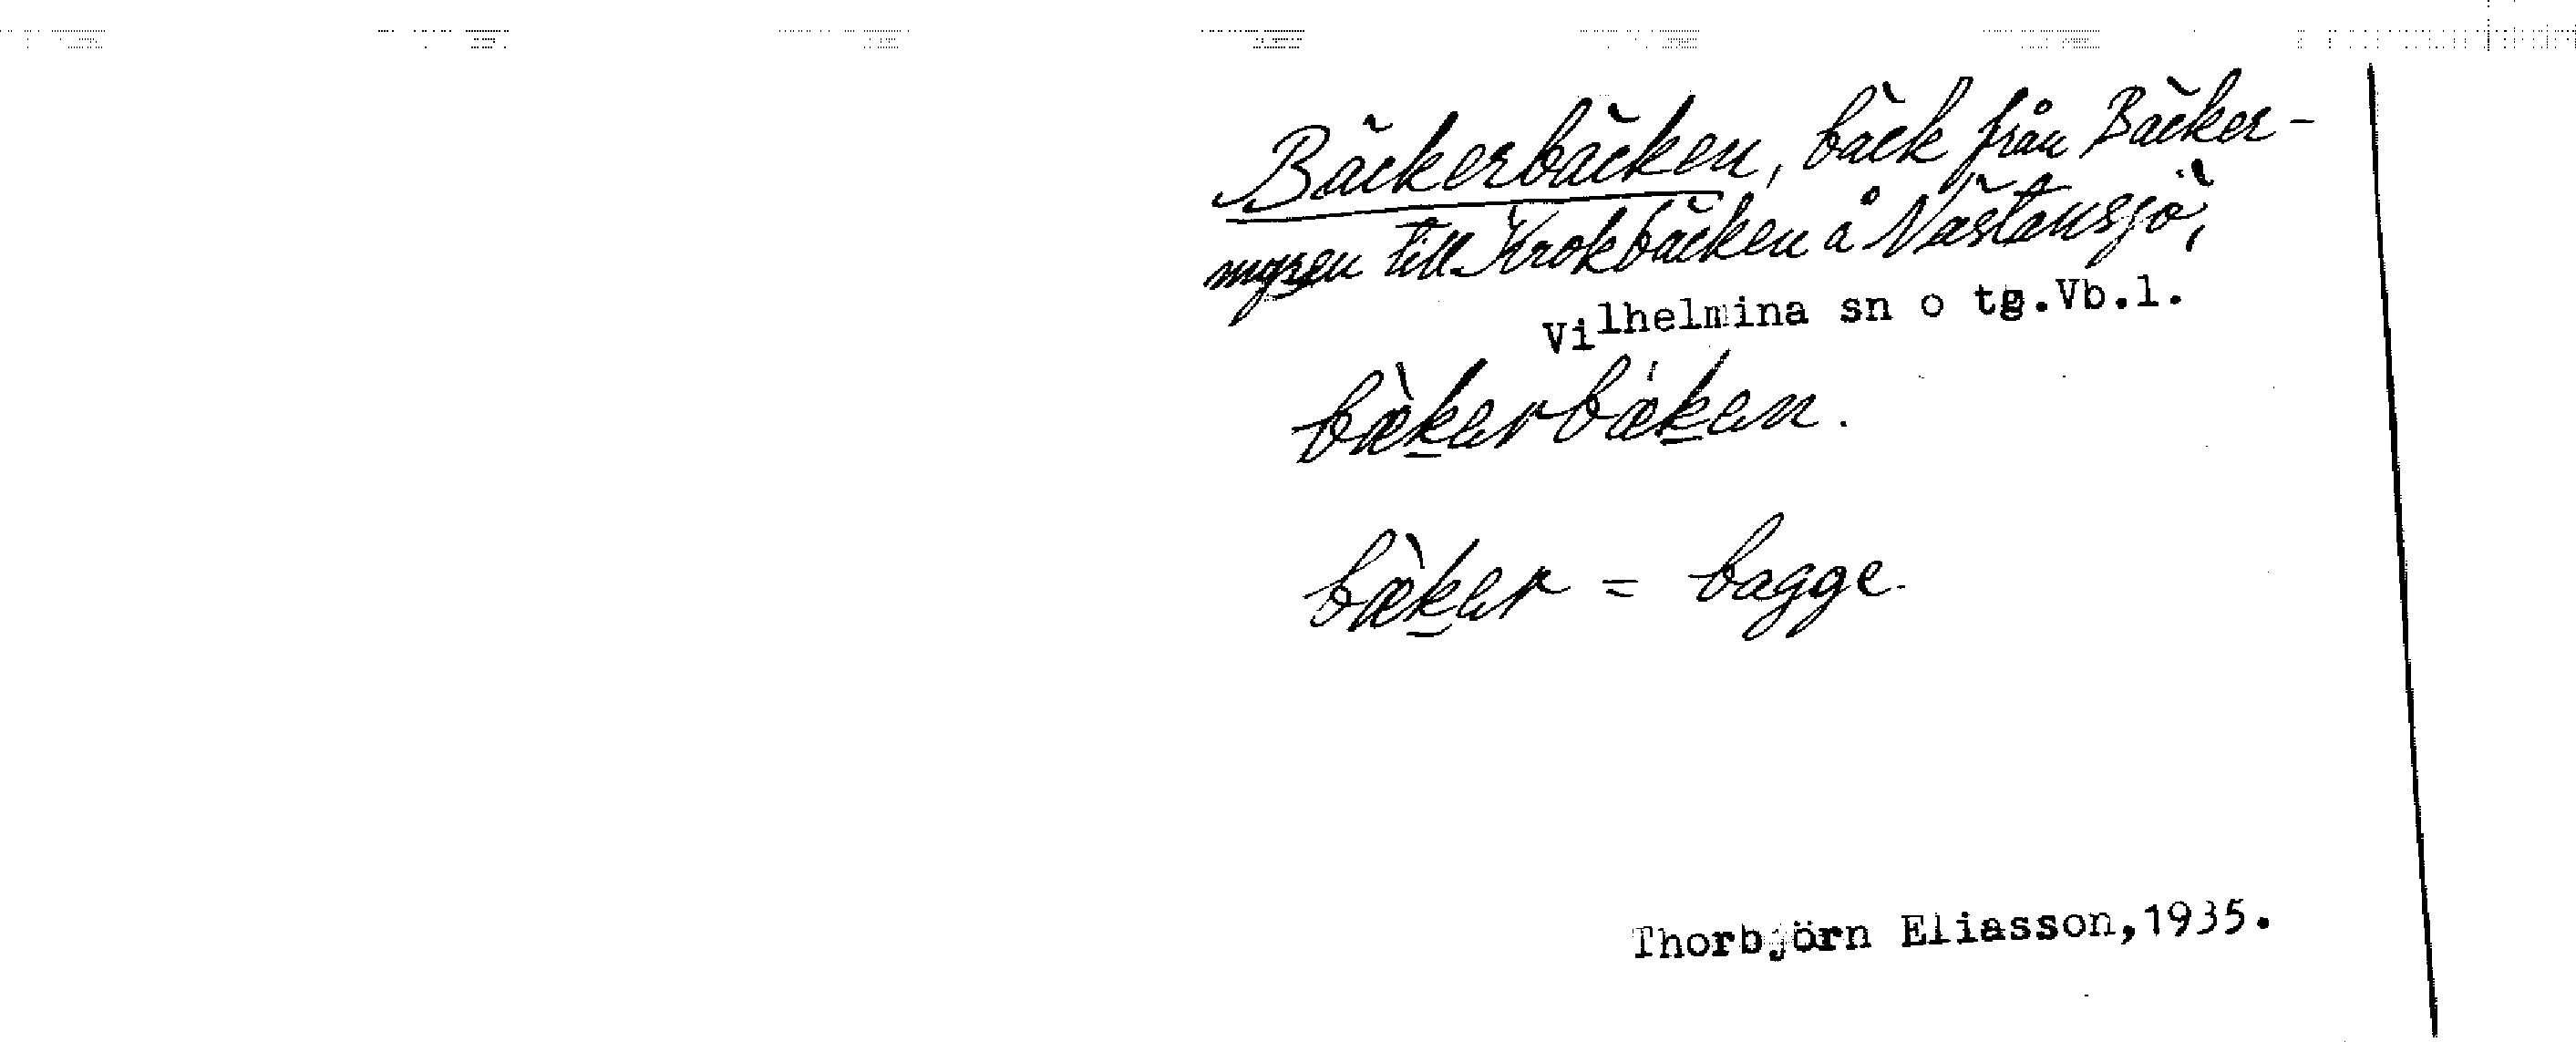 Bäckerbäcken, bäck från Bäcker-
myren till Krokbäcken å Nästansjö,
Vilhelmina sn o tg.Vb.l.
bæ̀kerbæken.
bæ̀ker = bagge.
Thorbjörn Eliasson,1935.